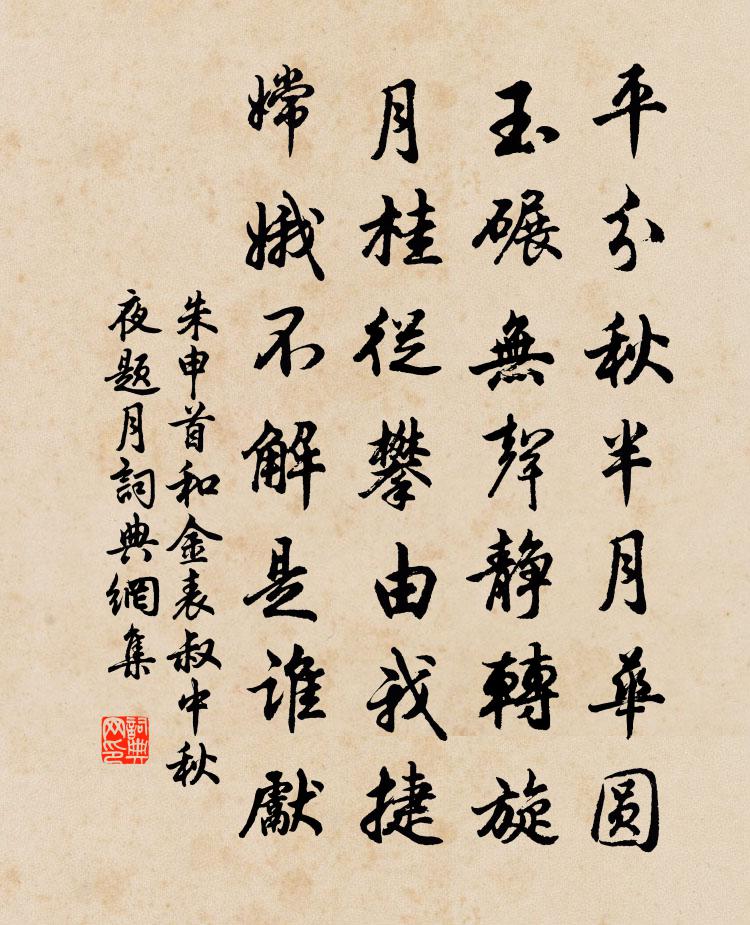 平分秋半月華圓
玉碾無聲靜轉旋
月桂從攀由我捷
嫦娥不解是誰獻
朱申首和金表叔中秋
夜题月詞典網集
詞典网印